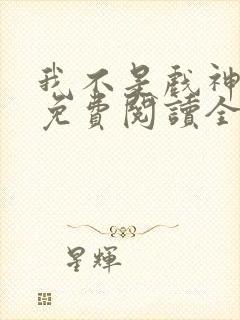 我不是戲神
免費閱讀全
星輝